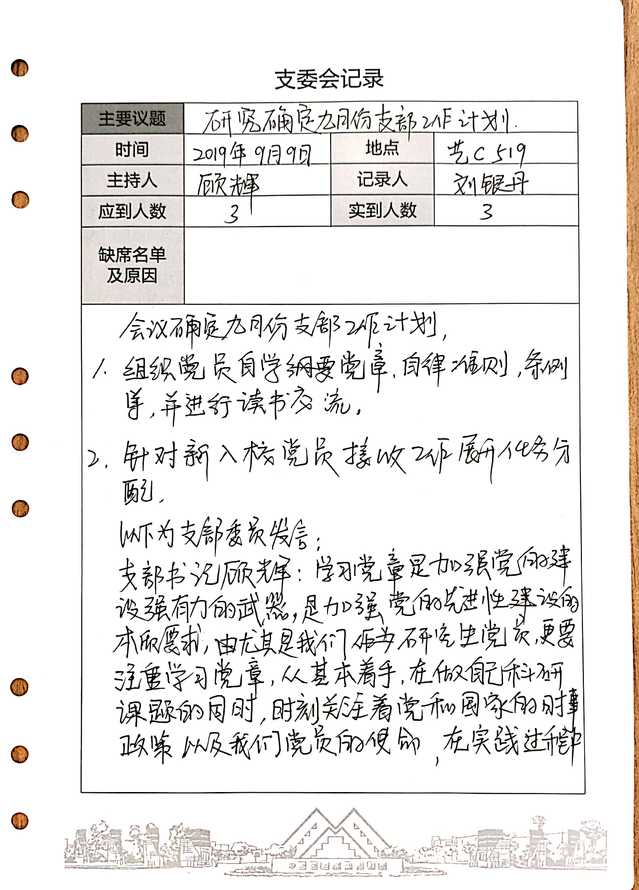 支委会记录
主要议题 研究确定九月份支部工作计划.
时间 2019年9月9日 地点 艺C 519
主持人 顾辉 记录人 刘银丹
应到人数 3 实到人数 3
缺席名单
及原因
会议确定九月份支部工作计划,
1. 组织党员自学纲要党章、自律准则,条例
等,并进行读书交流。
2. 针对新入校党员接收工作展开任务分
配.
以下为支部委员发言:
支部书记顾辉: 学习党章是加强党的建
设强有力的武器,是加强党的先进性建设的
本质要求,由尤其是我们 研究生党员,更要
注重学习党章,从基本着手,在做自己科研
课题的同时,时刻关注着党和国家的时事
政策以及我们党员的使命,在实践过程中